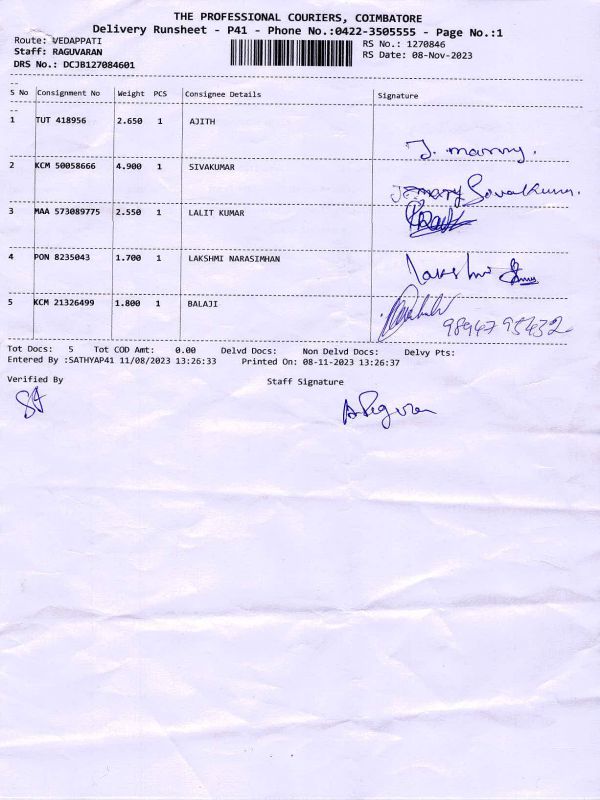 THE PROFESSIONAL COURIERS, COIMBATORE
Delivery Runsheet - P41 - Phone No.:0422-3505555 - Page No.:1
Route: VEDAPPATI RS No.: 1270846
Staff: RAGUVARAN RS Date: 08-Nov-2023
DRS No.: DCJB127084601
S No Consignment No Weight PCS Consignee Details Signature
1 TUT 418956 2.650 1 AJITH
J. manny.
2 KCM 50058666 4.900 1 SIVAKUMAR
3 MAA 573089775 2.550 1 LALIT KUMAR
4 PON 8235043 1.700 1 LAKSHMI NARASIMHAN
5 KCM 21326499 1.800 1 BALAJI
98947 95432
Tot Docs: 5 Tot COD Amt: 0.00 Delvd Docs: Non Delvd Docs: Delvy Pts:
Entered By :SATHYAP41 11/08/2023 13:26:33 Printed On: 08-11-2023 13:26:37
Verified By Staff Signature